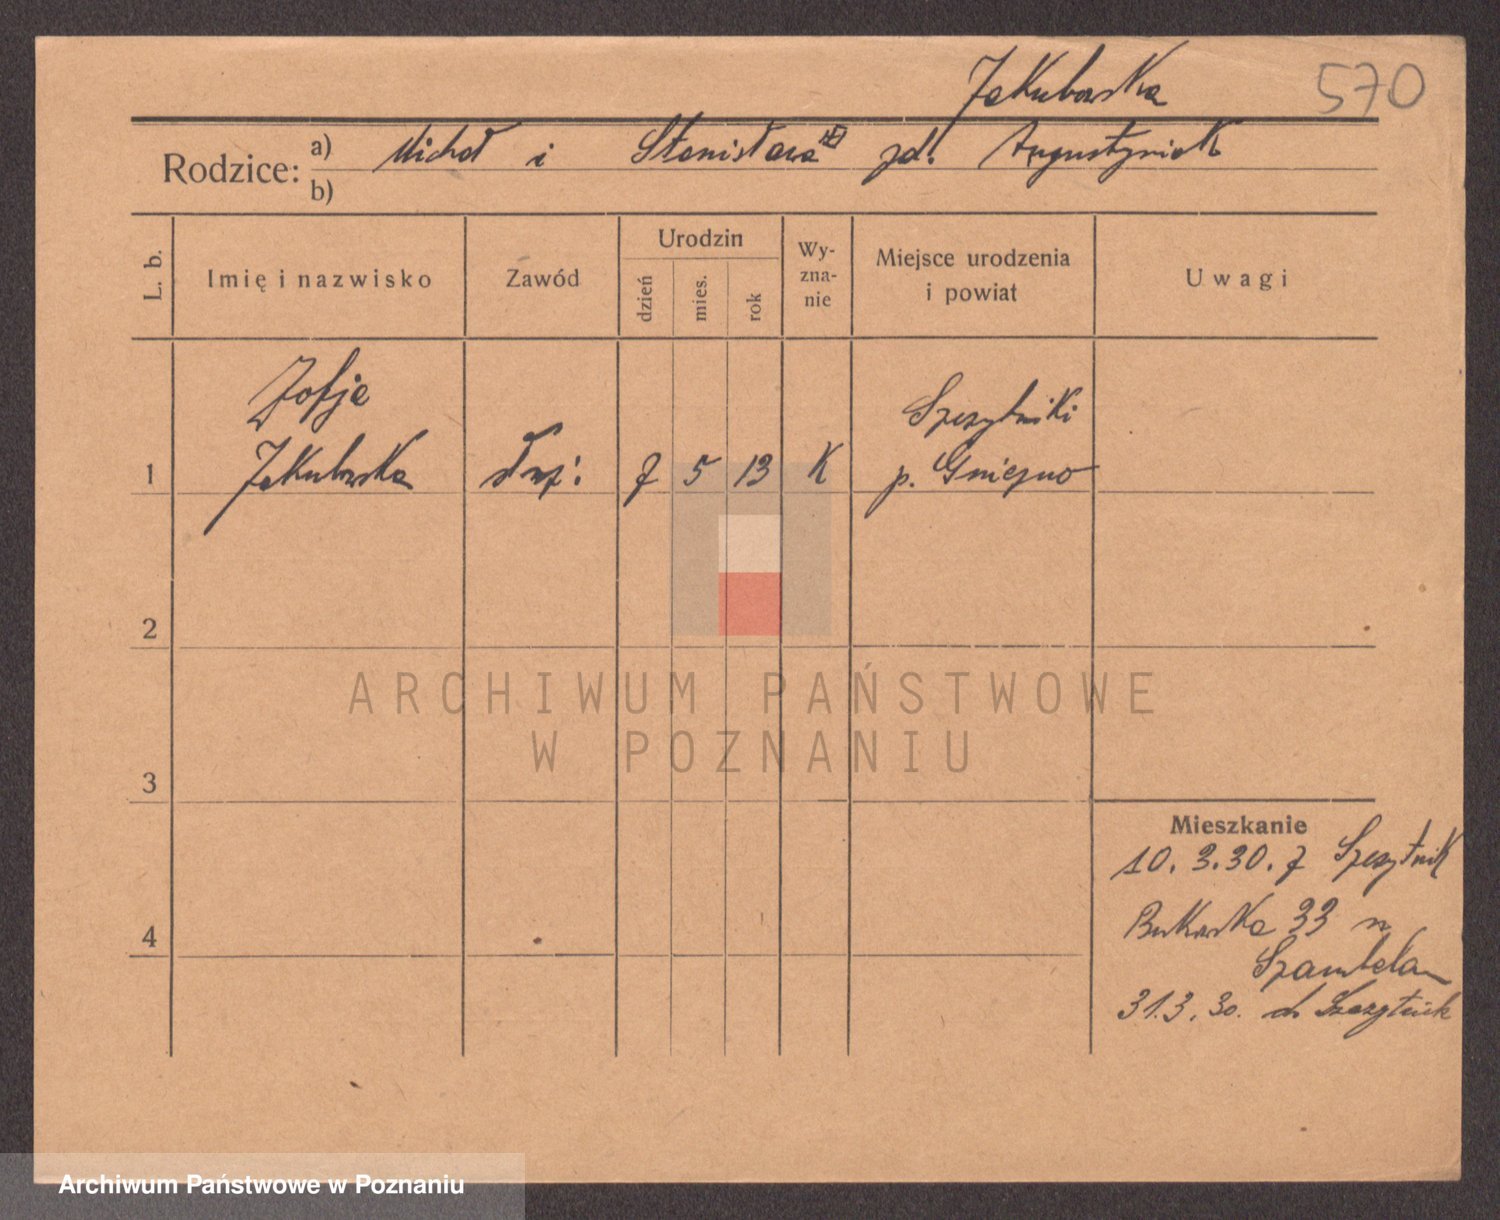 Jakubowska
570
Rodzice: a) Michał i Stanisława zd. Augustyniak
b)
L. b.
Imię i nazwisko
Zawód
Urodzin
dzień
mies.
rok
Wy-
zna-
nie
Miejsce urodzenia
i powiat
Uwagi
Zofja
Szczytniki
1 Jakubowska służ: 7 5 13 K p. Gniezno
2
ARCHIWUM PAŃSTWOWE
W POZNANIU
3
Mieszkanie
10. 3. 30. z Szczytnik
4
33 n
31.3. 30. do Szczytnik
Archiwum Państwowe w Poznaniu